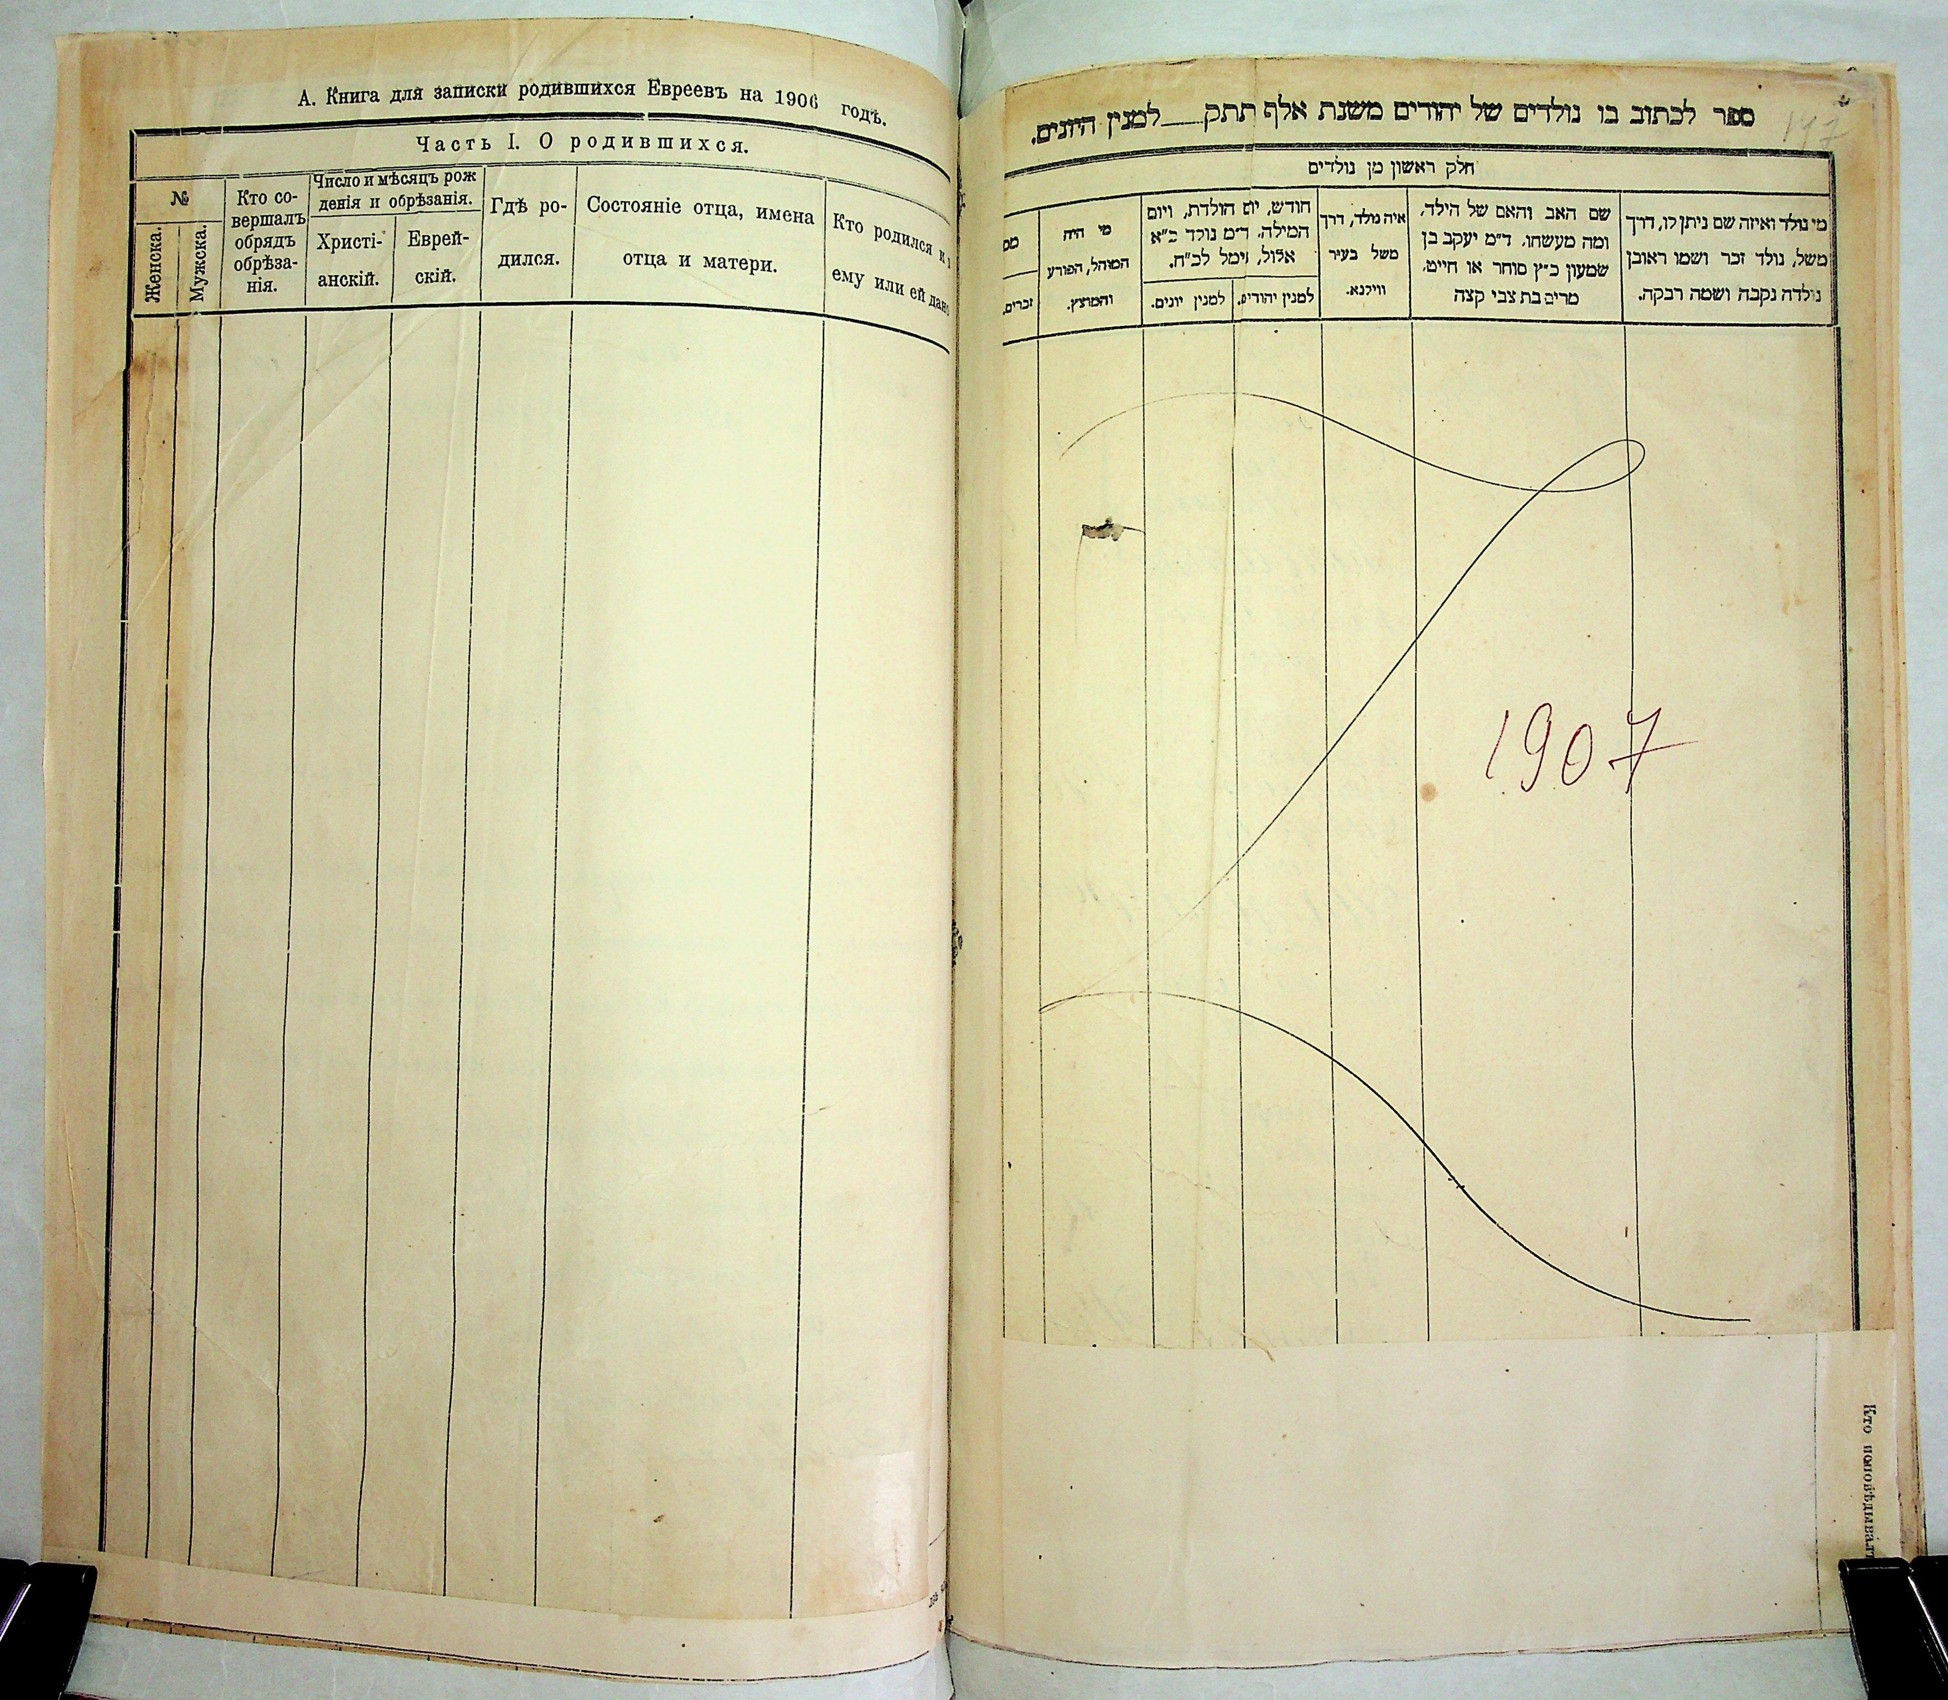 А. Книга для записки родившихся Евреевъ на 1906 годъ.
Часть I. О родившихся.
№
Женска.
Мужска.
Кто со-
вершалъ
обрядъ
обрѣза-
нія.
Число и мѣсяцъ рож
денія и обрѣзанія.
Христі-
анскій.
Еврей-
скій.
Гдѣ ро-
дился.
Состояніе отца, имена
отца и матери.
Кто родился и
ему или ей дано
ספר לכתוב בו נולדים של יהודים משנת אלף תתק___למנין היונים.
147
חלק ראשון מן נולדים
מי נולד ואיזה שם ניתן לו, דרך
משל, נולד זכר ושמו ראובן
נולדה נקבה ושמה רבקה.
שם האב והאם של הילד,
ומה מעשהו. ד״מ יעקב בן
שמעון כ״ץ סוחר או חייט,
מרים בת צבי קצה
איה נולד, דרך
משל בעיר
ווילנא.
חודש, יום הולדת, ויום
המילה. ד״מ נולד כ״א
אלול, נימל לכ״ח.
למנין יהודים.
למנין יונים.
מי היה
המוהל, הפורע
והמוצץ.
מס
זכרים.
1907
Кто исповѣдывалъ